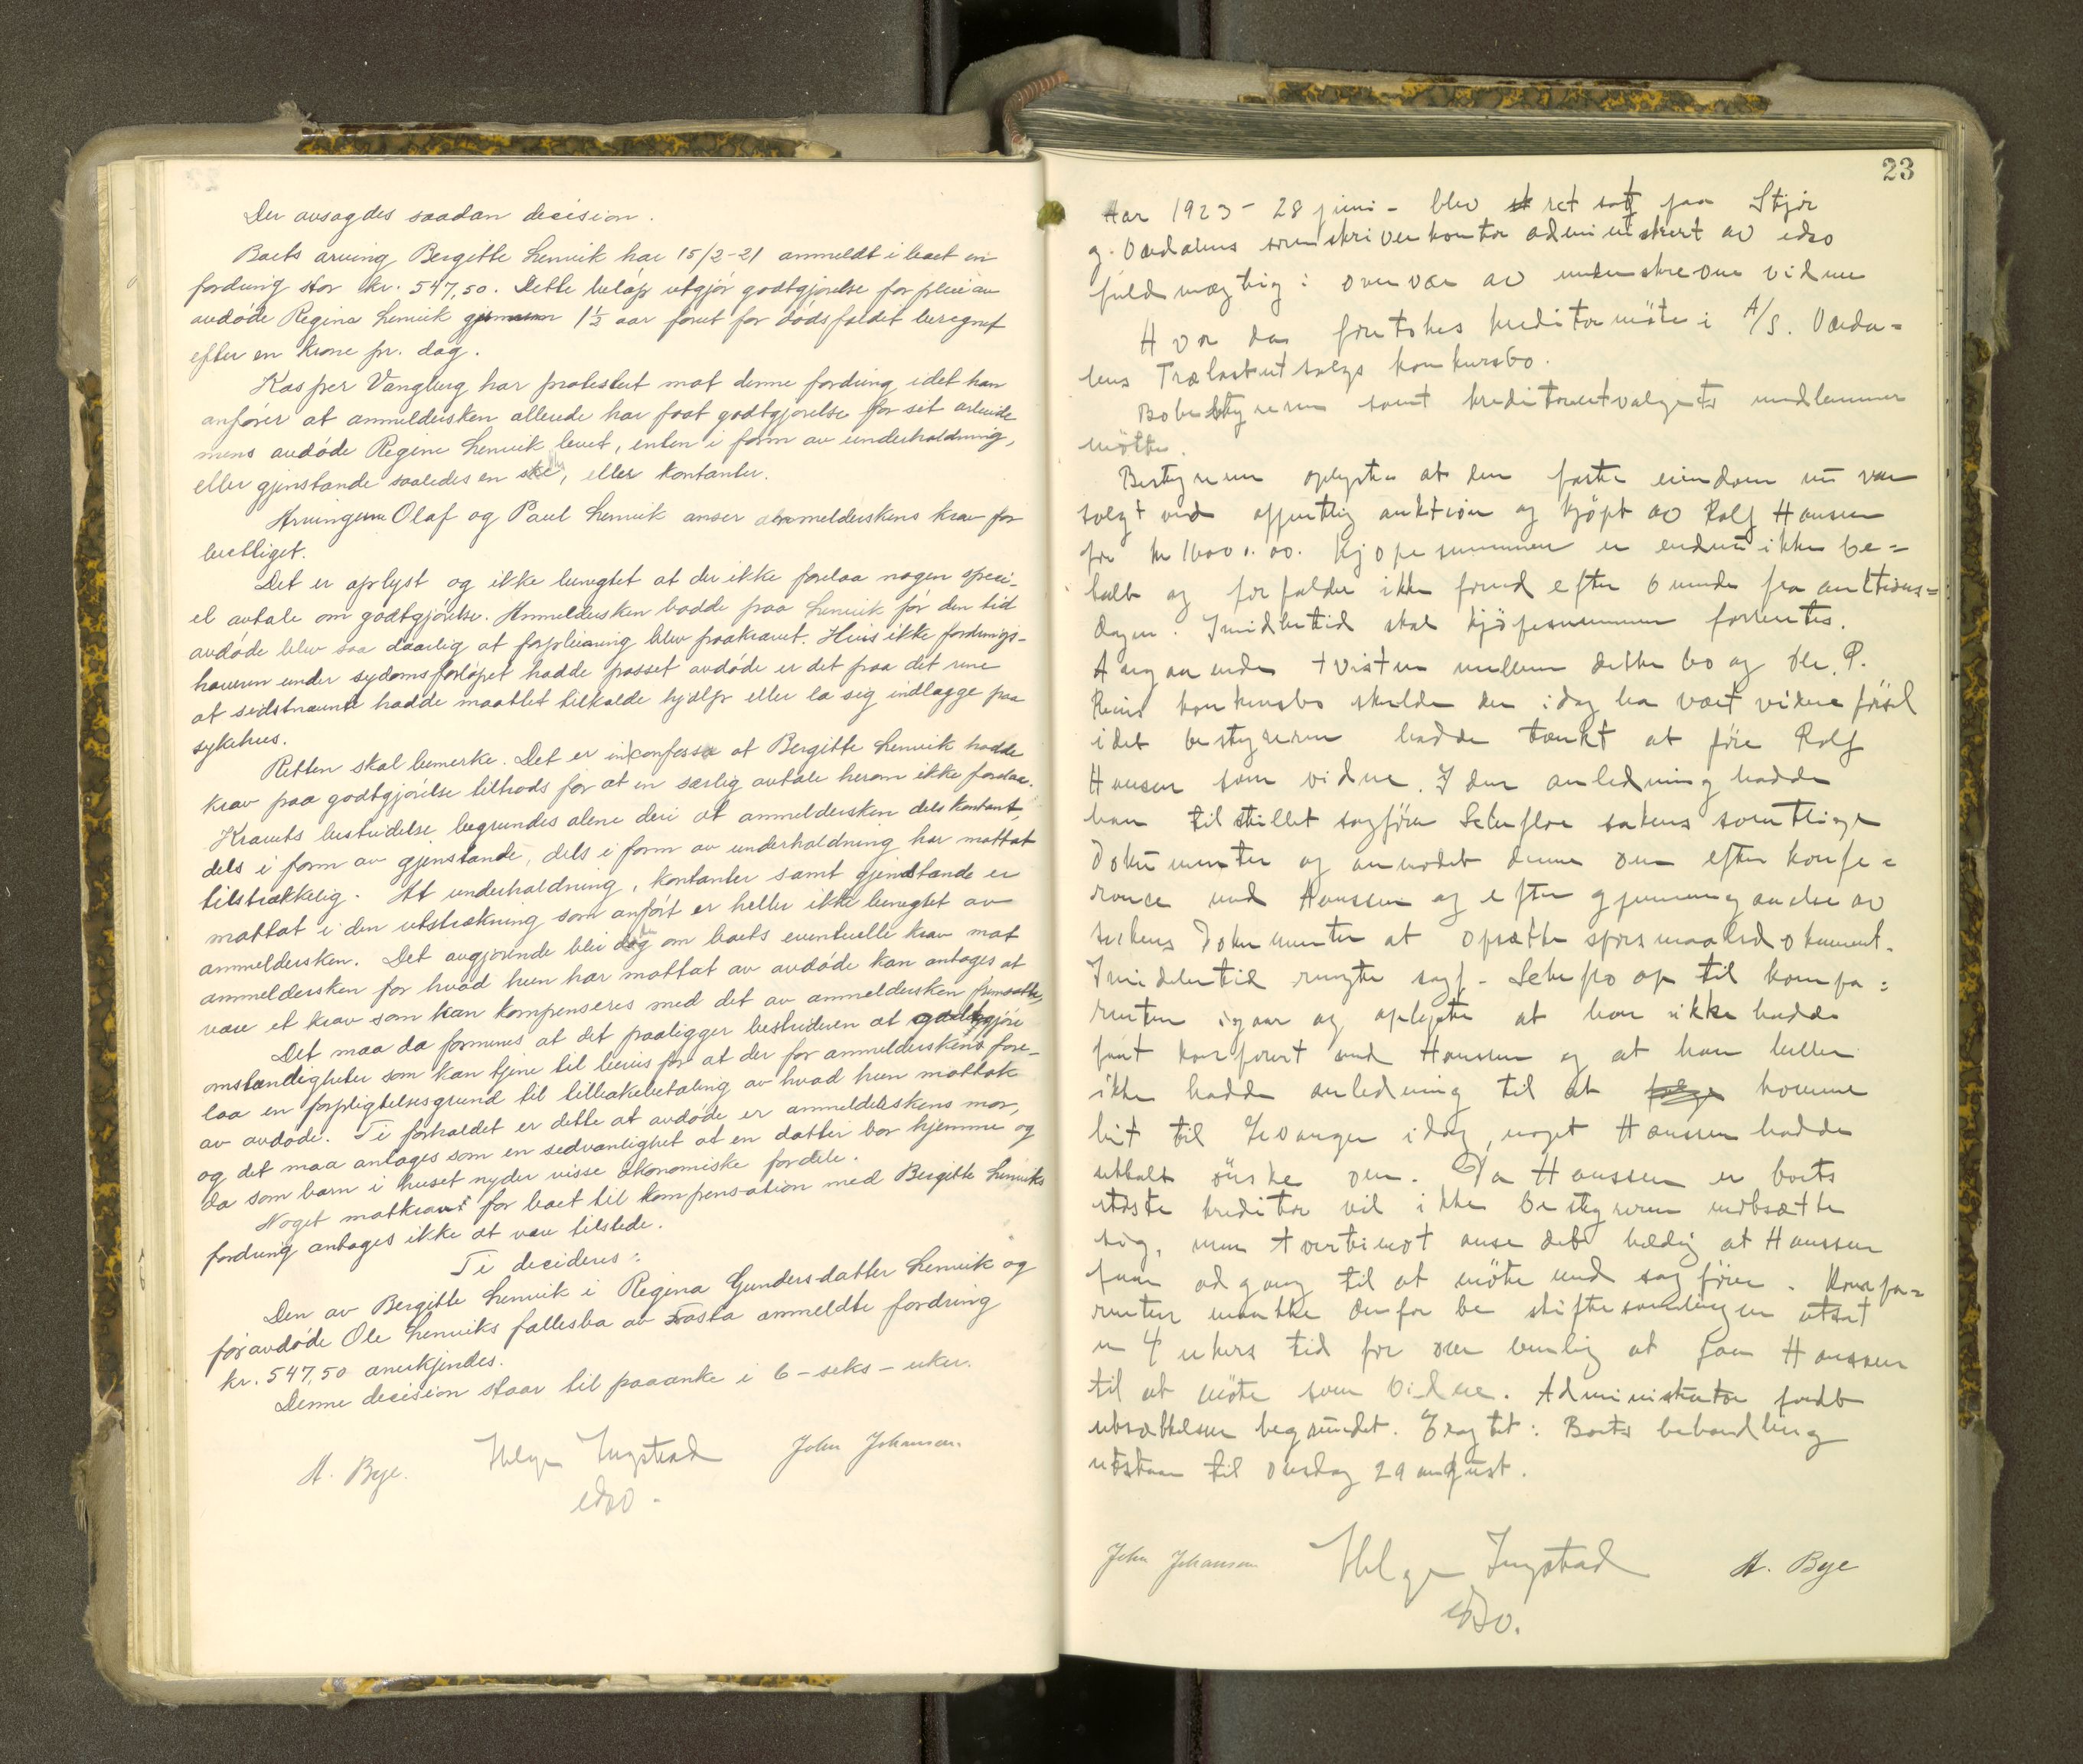 Der avsagdes saadan decision.
Boets arving Bergitte Lenvik har 15/2-21 anmeldt i boet en
fordring stor kr. 547,50. Dette beløp utgjør godtgjørelse for pleie av
avdøde Regina Lenvik gjennem 1½ aar forut for dødsfaldet beregnet
efter en krone pr. dag.
Kasper Vangberg har protestert mot denne fordring idet han
anfører at anmeldersken allerede har faat godtgjørelse for sit arbeide
mens avdøde Regine Lenvik levet, enten i form av underholdning,
eller gjenstande saaledes en, eller kontanter.
Arvingerne Olaf og Paul Lenvik anser anmelderskens krav for
berettiget.
Det er oplyst og ikke benegtet at der ikke forelaa nogen speci-
el avtale om godtgjørelse. Anmeldersken bodde paa Lenvik før den tid
avdøde blev saa daarlig at forpleining blev paakrævet. Hvis ikke fordrings-
haveren under sydomsforløpet hadde passet avdøde er det paa det rene
at sidstnævnte hadde maattet tilkalde hjælp eller la sig indlægge paa
sykehus.
Retten skal bemerke. Det er in confesso at Bergitte Lenvik hadde
krav paa godtgjørelse tiltrods for at en særlig avtale herom ikke forelaa.
Kravets bestridelse begrundes alene deri at anmeldersken dels kontant,
dels i form av gjenstande, dels i form av underholdning har mottat
tilstrækkelig. At underholdning, kontanter samt gjenstande er
mottat i den utstrækning som anført er heller ikke benegtet av
anmeldersken. Det avgjørende blir da om boets eventuelle krav mot
anmeldersken for hvad hun har mottat av avdøde kan antages at
være et krav som kan kompenseres med det av anmeldersken fremsatte.
Det maa da formenes at det paaligger bestrideren at godtgjøre
omstændigheter som kan tjene til bevis for at der for anmelderskens fore-
laa en forpligtelsesgrund til tilbakebetaling av hvad hun mottok
av avdøde. Ti forholdet er dette at avdøde er anmelderskens mor,
og det maa antages som en sedvanlighet at en datter bor hjemme og
da som barn i huset nyder visse økonomiske fordele.
Noget motkrav for boet til kompensation med Bergitte Lenviks
fordring antages ikke at være tilstede.
Ti decideres:
Den av Bergitte Lenvik i Regina Gundersdatter Lenvik og
føravdøde Ole Lenviks fællesbo av Frosta anmeldte fordring
kr. 547,50 anerkjendes.
Denne decision staar til paaanke i 6 - seks - uker.
A. Bye. Helge Ingstad John Johansen.
edso.
23
Aar 1923 - 28 juni - blev ret sat paa Stjør
og Værdalens sorenskriverkontor administrert av edso
fuldmægtig i overvær av underskrevne vidner
Hvor da foretokes kreditormøte i A/S. Værda=
lens Trælastutsalgs konkursbo.
Bobestyreren samt kreditorutvalgets medlemmer
møtte.
Bestyreren oplyste at den faste eiendom nu var
solgt ved offentlig auktion og kjøpt av Rolf Hansen
for kr 16000.00. Kjøpesummen er endnu ikke be=
talt og forfalder ikke førend efter 6 uker fra auktions=
dagen. Imidlertid skal kjøpesummen forrentes.
Angaaende tvisten mellem dette bo og Ole P.
konkursbo skulde der idag ha vært vidneførsel
idet bestyreren hadde tænkt at føre Rolf
Hansen som vidne. I den anledning hadde
han tilstillet sagfører sakens samtlige
dokumenter og anmodet denne om efter konfe=
rance med Hanssen og efter gjennemgaaelse av
sakens dokumenter at opsætte spørsmaalsdokument.
Imidlertid ringte sagf. op til kompa=
renten igaar og oplyste at han ikke hadde
faat konferert med Hanssen og at han heller
ikke hadde anledning til at komme
hit til Levanger idag, noget Hanssen hadde
uttalt ønske om. Da Hanssen er boets
største kreditor vil ikke bestyreren motsætte
sig, men tvertimot anse det heldig at Hanssen
faar adgang til at møte med sagfører. Kompa=
renten maatte derfor be skiftesamlingen utsat
en 4 ukers tid for om mulig at faa Hanssen
til at møte som vidne. Administrator fandt
utsættelsen begrundet. Eragtet: Boets behandling
utstaar til onsdag 29 august.
John Johansen Helge Ingstad A. Bye
edso.